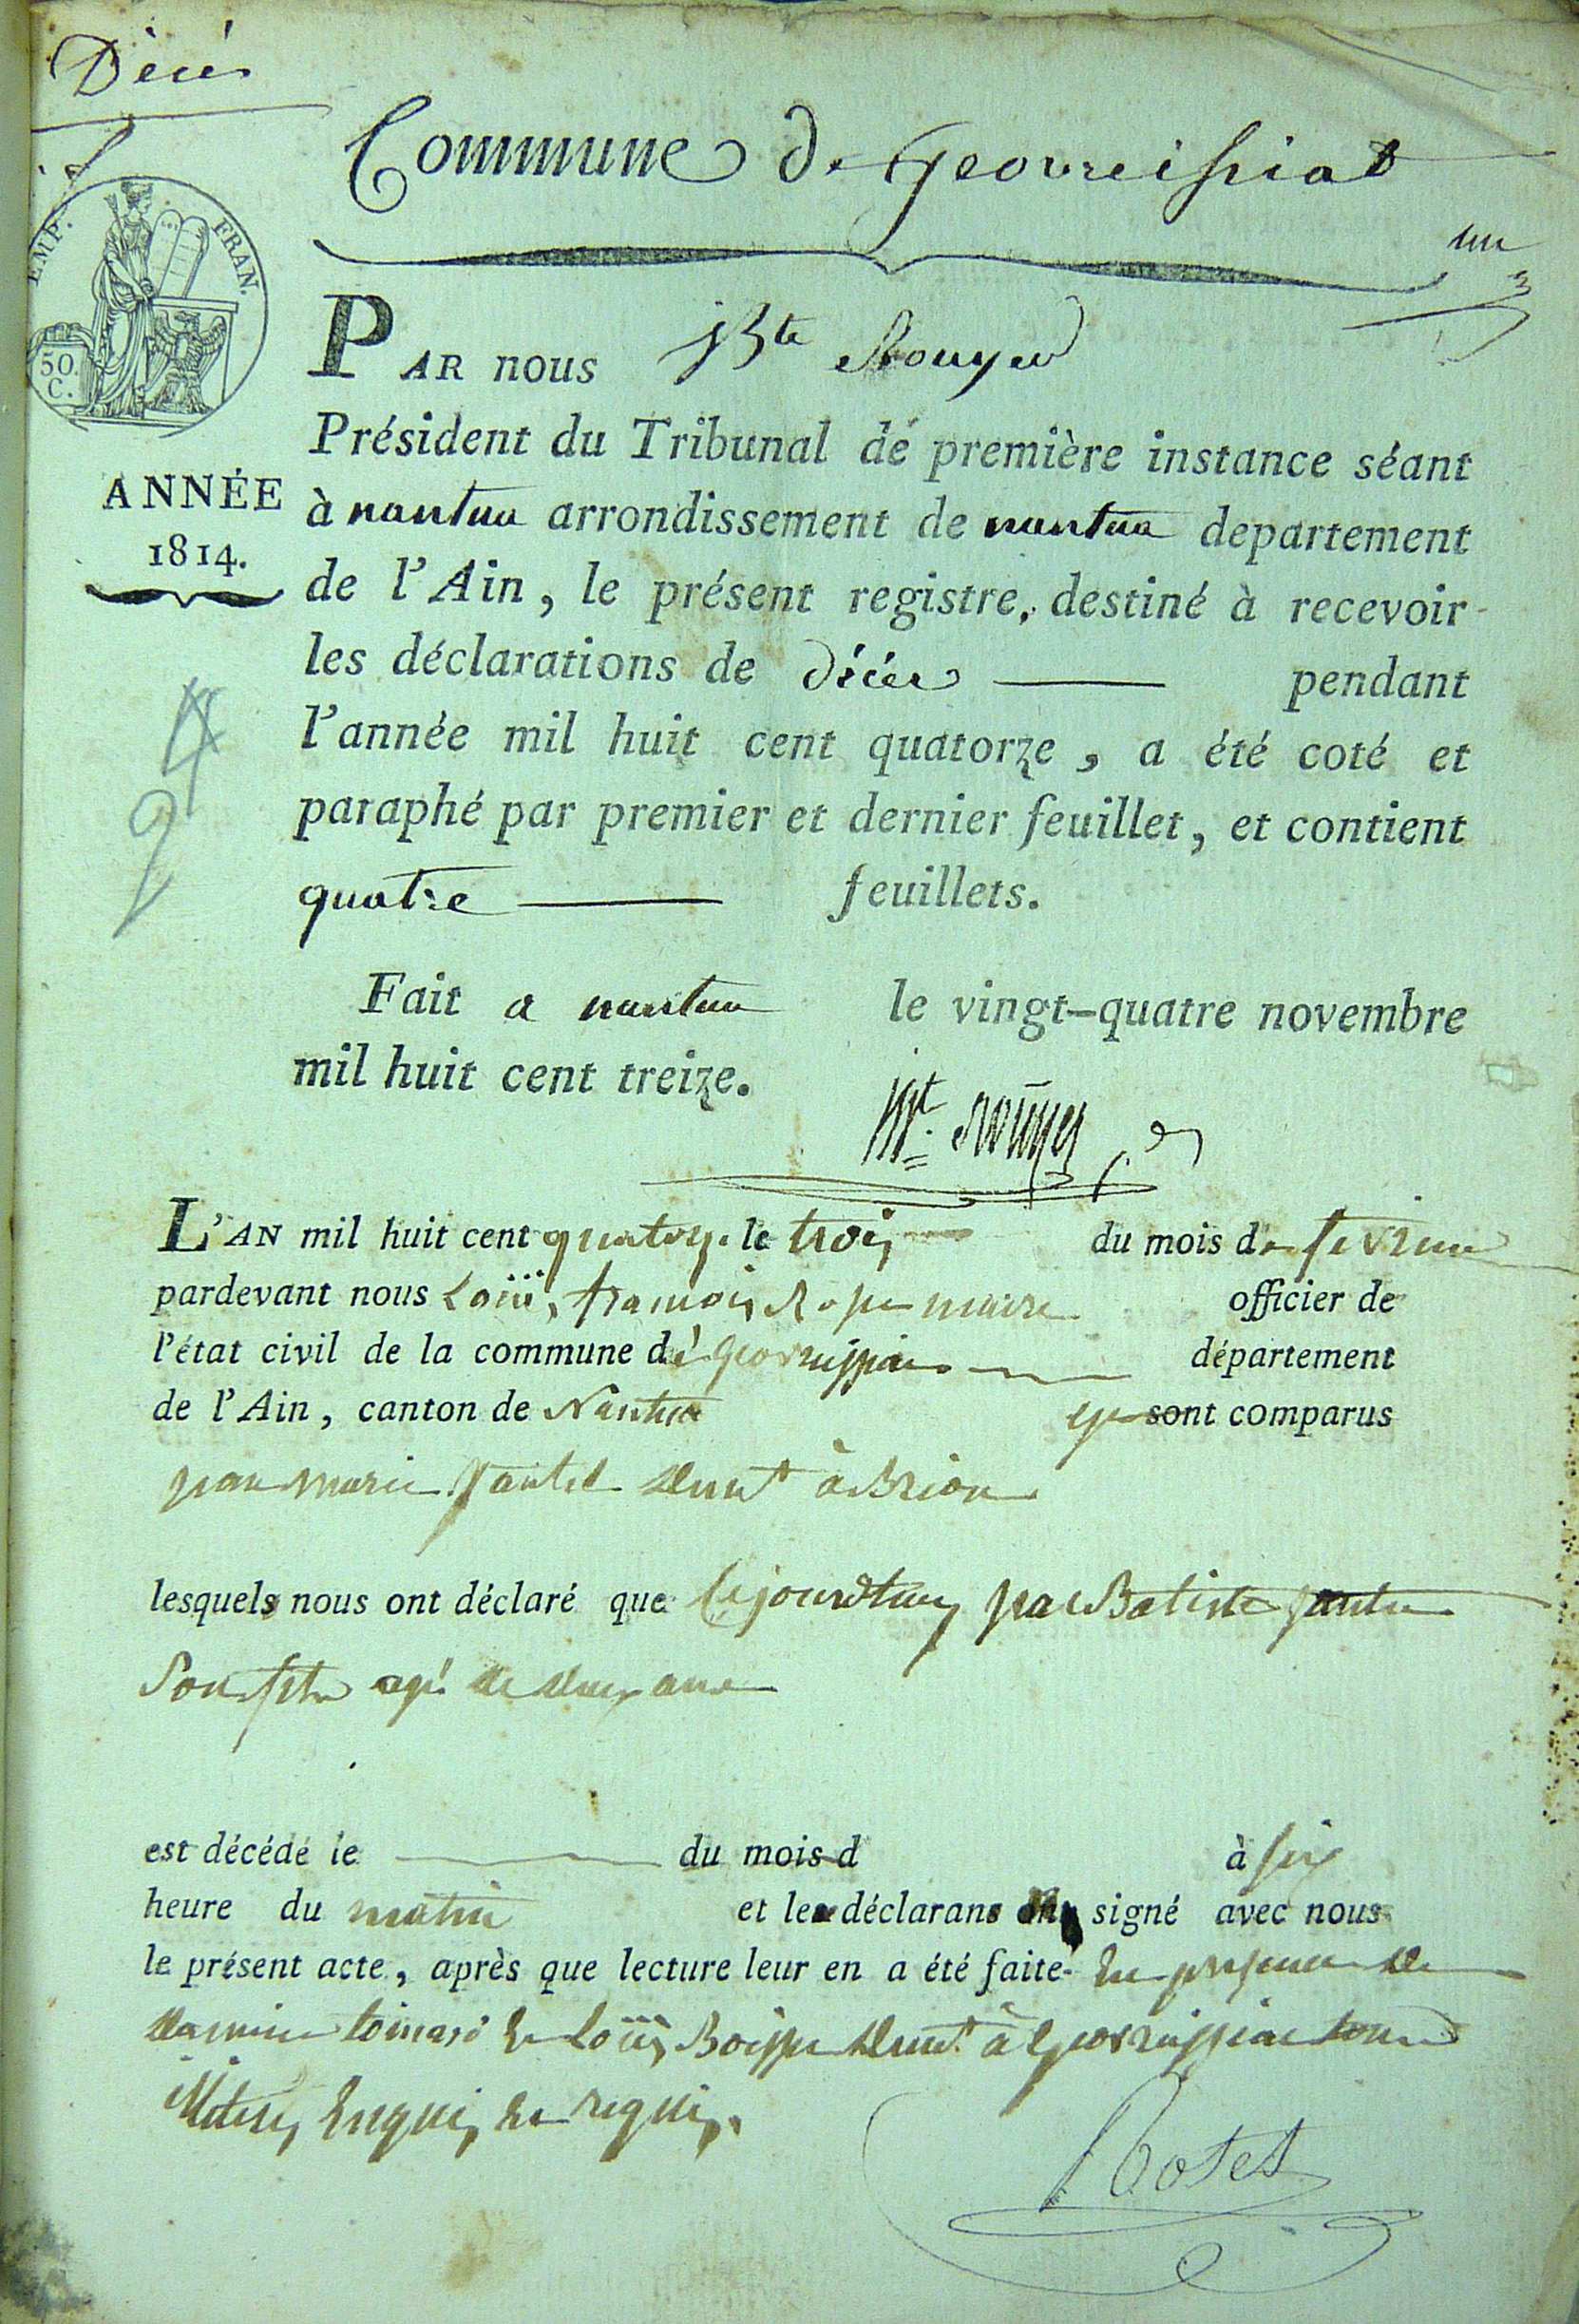 Décés
Commune de Geovreissiat
EMP. FRAN.
50. C.
un
PAR nous JBte Rouyer
Président du Tribunal de première instance séant
ANNÉE
1814.
à nantua arrondissement de nantua departement
de l'Ain, le présent registre, destiné à recevoir
les déclarations de décés pendant
l'année mil huit cent quatorze, a été coté et
paraphé par premier et dernier feuillet, et contient
quatre feuillets.
Fait a nantua le vingt-quatre novembre
mil huit cent treize.
Bte. Rouyer
L'AN mil huit cent quatorze le trois du mois de fevrier
pardevant nous Loüis françois maire officier de
l'état civil de la commune de Geovreissiat département
de l'Ain, canton de Nantua sont comparus
jean marie demt à Brion
lesquels nous ont déclaré que cejourdhuy jean Batiste
son fils agé de deux ans
est décédé le du mois d à six
heure du matin et le déclarant signé avec nous
le présent acte, après que lecture leur en a été faite. en presence de
et Loüis demt. à Geovreissiat
illiteré enquis et requis.
Rotet